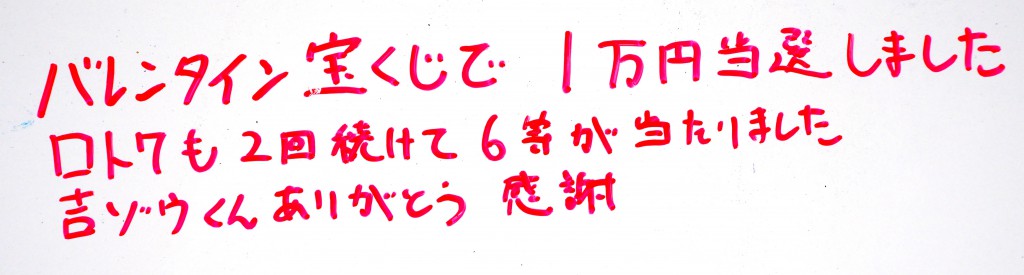 バレンタイン宝くじで 1万円当選しました
ロト7も2回続けて6等が当たりました
吉ゾウくんありがとう 感謝